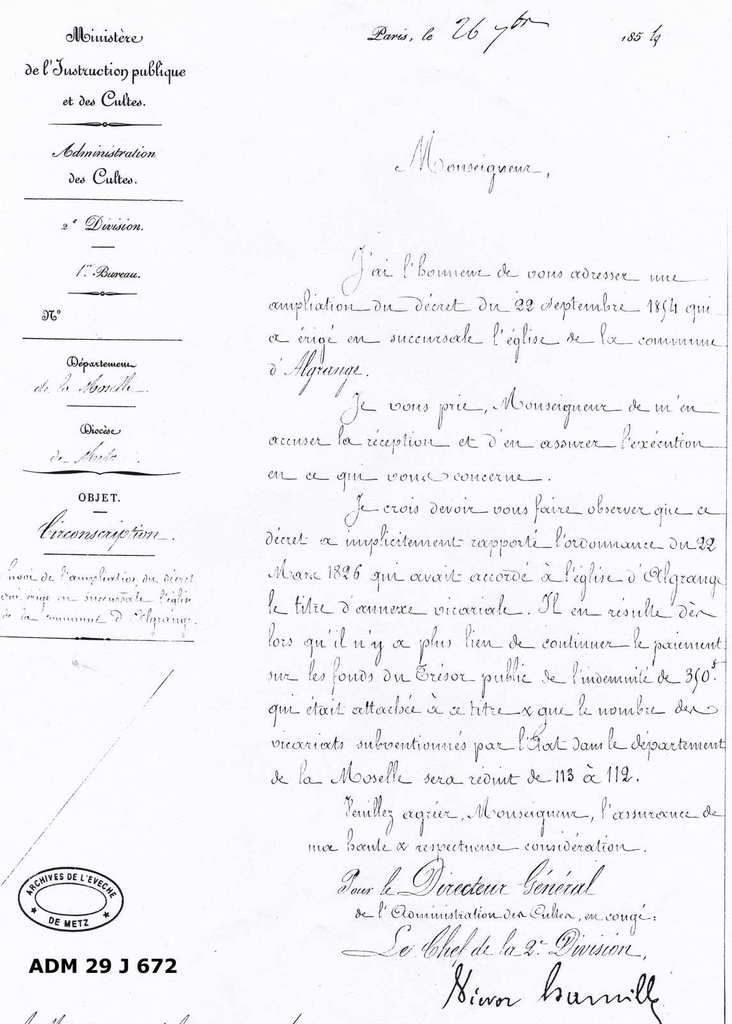 Ministère
de l'Instruction publique
et des Cultes.
Administration
des Cultes.
2e Division.
1er Bureau.
N°
Département
de la Moselle.
Diocèse
de Metz.
OBJET.
Circonscription.
Envoi de l'ampliation du décret
qui érige en succursale l'église
de la commune d'Algrange.
Paris, le 26 7bre 1854
Monseigneur,
J'ai l'honneur de vous adresser une
ampliation du décret du 22 septembre 1854 qui
a érigé en succursale l'église de la commune
d'Algrange.
Je vous prie, Monseigneur de m'en
accuser la réception et d'en assurer l'exécution
en ce qui vous concerne.
Je crois devoir vous faire observer que ce
décret a implicitement rapporté l'ordonnance du 22
Mars 1826 qui avait accordé à l'église d'Algrange
le titre d'annexe vicariale. Il en résulte dès
lors qu'il n'y a plus lieu de continuer le paiement
sur les fonds du Trésor public de l'indemnité de 350f
qui était attachée à ce titre & que le nombre des
vicariats subventionnés par l'Etat dans le département
de la Moselle sera réduit de 113 à 112.
Veuillez agréer, Monseigneur, l'assurance de
ma haute & respectueuse considération.
Pour le Directeur Général
de l'Administration des Cultes, en congé:
Le Chef de la 2e Division,
Victor Hamille
ARCHIVES DE L'EVECHE
DE METZ
ADM 29 J 672